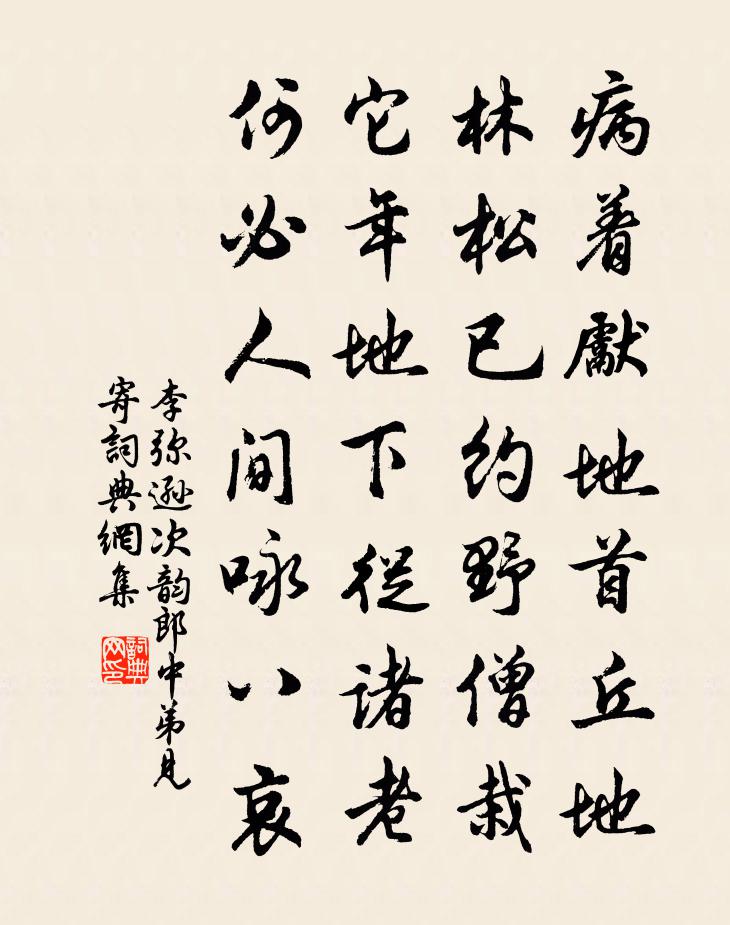 病着獻地首丘地
林松已约野僧栽
它年地下從諸老
何必人间咏八哀
李弥遜次韵郎中弟見
寄詞典網集
詞典网印